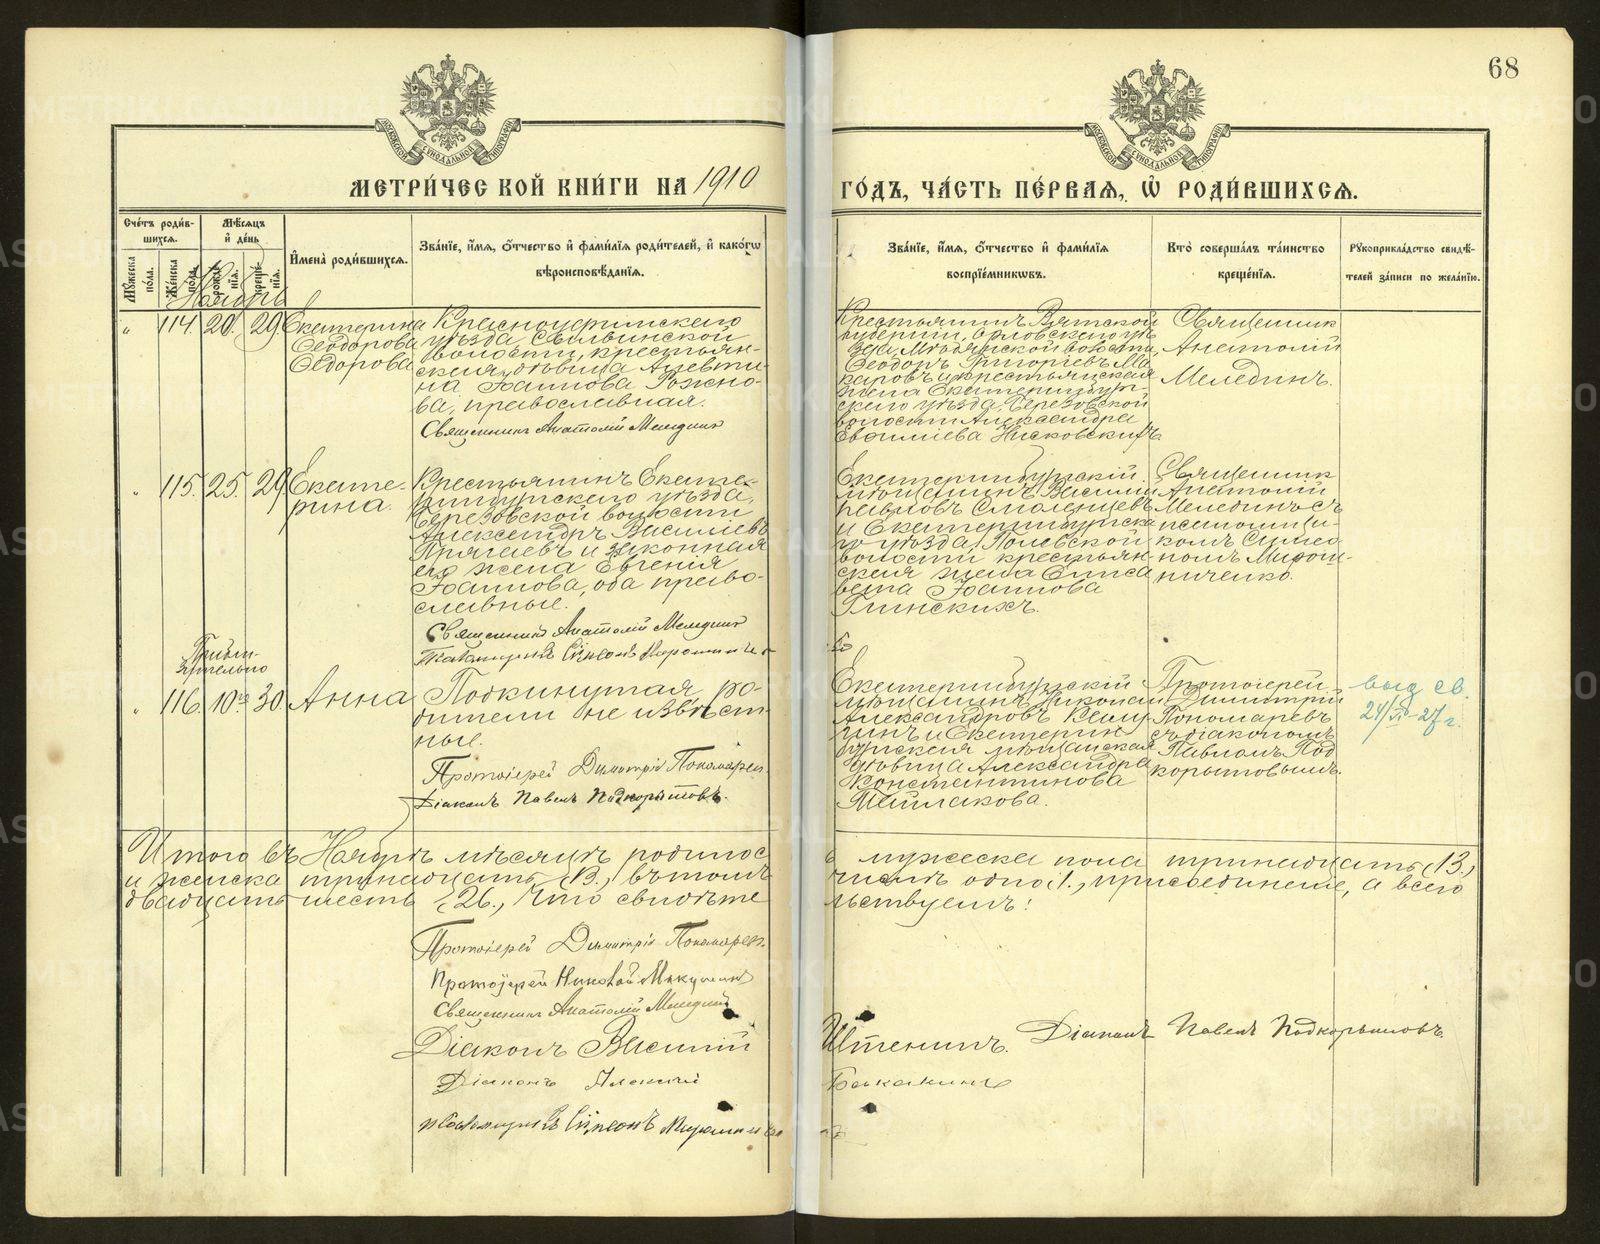 68
МЕТРИ́ЧЕС КОЙ КНИ́ГИ НА 1910
ГО́ДЪ, ЧА́СТЬ ПЕ́РВАЯ, Ѡ РОДИ́ВШИХСЯ.
Сче́тъ роди́в-
шихся.
Мѣ́сяцъ
и де́нь
Мꙋ́жеска
по́ла.
Же́нска
по́ла.
рожде́
нїя.
креще́-
нїя.
И́мена̀ роди́вшихся.
Зва́нїе, и́мя, о́тчество и фами́лїя роди́телей, и како́гѡ
вѣроисповѣ́данїя.
Зва́нїе, и́мя, о́тчество и фами́лїя
воспрїе́мникѡвъ.
Кто̀ соверша́лъ та́инство
креще́нїя.
Рꙋкоприкла́дство свидѣ́-
телей за́писи по жела́нїю.
Ноябрь
" 114. 20. 29.
Екатерина
Ѳеодорова
Ѳедорова
Красноуфимскаго
уѣзда, Сылвинской
волости, крестьян-
ская дѣвица Алевти-
на Іоаннова Рожно-
ва, православная.
Священникъ Анатолій Мелединъ
Крестьянинъ Вятской
губерніи, Орловскаго уѣ
зда, волости,
Ѳеодоръ Григоріевъ Ма
каровъ и крестьянская
жена Екатеринбург-
скаго уѣзда, Березовской
волости Александра
Евѳиміева
Священник
Анатолій
Мелединъ.
" 115. 25. 29
Екате-
рина.
Крестьянинъ Екате-
ринбургскаго уѣзда,
Березовской волости
Александръ Василіевъ
и законная
его жена Евгенія
Іоаннова, оба право-
славные.
Священникъ Анатолій Меледин
Псаломщикъ Сѵмеонъ
Екатеринбургскій
мѣщанинъ Василій
Павловъ
и Екатеринбургска
го уѣзда, Полевской
волости крестьян-
ская жена Елиса
вета Іоаннова
Глинскихъ.
Священник
Анатолій
Мелединъ съ
псаломщи-
комъ Симео
номъ Мирош-
ниченко.
Прибли-
зительно
" 116. 10го 30.
Анна
Подкинутая, ро-
дители не извѣст-
ные.
Протоіерей Димитрій Пономарев
Діаконъ Павелъ Подкорытовъ.
Екатеринбургскій
мѣщанинъ Николай
Александровъ
и Екатерин
бургская мѣщанская
дѣвица Александра
Константинова
Протоіерей
Димитрій
Пономаревъ
съ діакономъ
Павломъ Под
корытовымъ.
выд св.
24/VI-27 г.
Итого въ Ноябрѣ мѣсяцѣ родилос
ь мужеска пола тринадцать (13.)
и женска тринадцать (13.), въ томъ
числѣ одно (1.) присоединеніе, а всего
двадцать шесть (26.), что свидѣте
льствуемъ:
Протоіерей Димитрій Пономарев.
Протоіерей Николай
Священникъ Анатолій Меледин
Діаконъ Василій
Итенинъ.
Діаконъ Павелъ Подкорытовъ.
Діаконъ Алексій
Бакакинъ
Псаломщикъ Сѵмеонъ